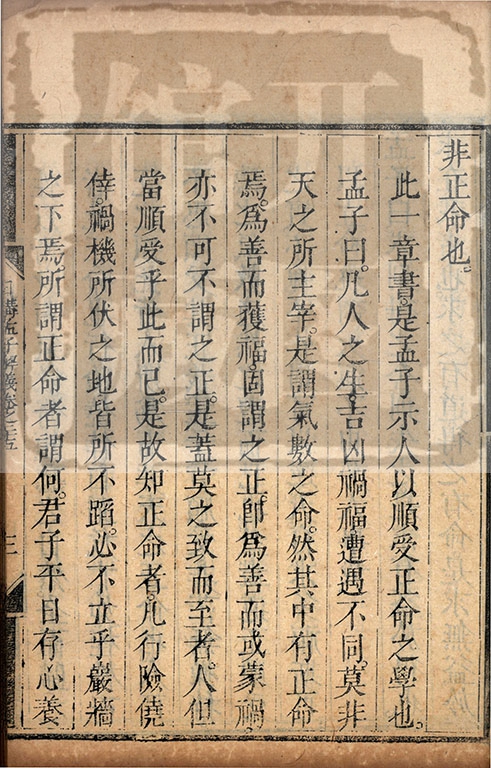 非正命也。
此一章書。是孟子示人以順受正命之學也。
孟子曰。凡人之生。吉凶禍福遭遇不同。莫非
天之所主宰。是謂氣數之命。然其中有正命
焉。為善而獲福。固謂之正。卽為善而或蒙禍。
亦不可不謂之正。是蓋莫之致而至者。人但
當順受乎此而已。是故知正命者。凡行險僥
倖。禍機所伏之地皆所不蹈。必不立乎巖牆
之下焉。所謂正命者謂何。君子平日存心養
日講孟子解義卷之二十五